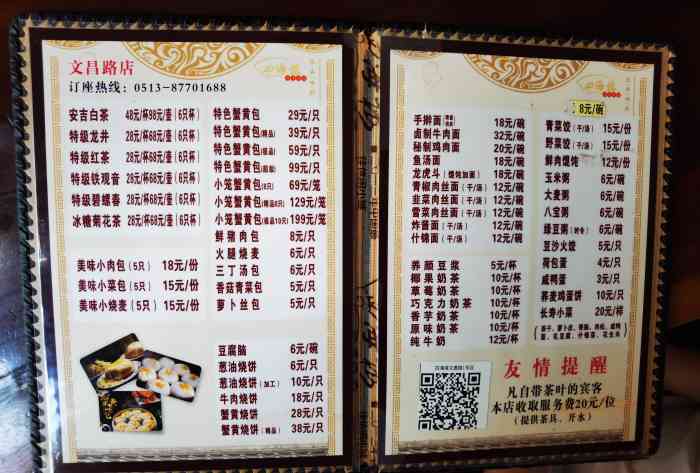 文昌路店
订座热线: 0513-87701688
安吉白茶 48元/杯98元/壶(6只杯)
特级龙井 28元/杯68元/壶(6只杯)
特级红茶 28元/杯68元/壶(6只杯)
特级铁观音 28元/杯68元/壶(6只杯)
特级碧螺春 28元/杯68元/壶(6只杯)
冰糖菊花茶 28元/杯68元/壶(6只杯)
美味小肉包(5只) 18元/份
美味小菜包(5只) 15元/份
美味小烧麦(5只) 15元/份
特色蟹黄包 29元/只
特色蟹黄包(精品) 39元/只
特色蟹黄包 59元/只
特色蟹黄包 99元/只
小笼蟹黄包(8只) 69元/笼
小笼蟹黄包(精品8只) 129元/笼
小笼蟹黄包(精品10只) 199元/笼
鲜猪肉包 8元/只
火腿烧麦 6元/只
三丁汤包 6元/只
香菇青菜包 5元/只
萝卜丝包 5元/只
豆腐脑 6元/碗
葱油烧饼 6元/只
葱油烧饼(加工) 10元/只
牛肉烧饼 18元/只
蟹黄烧饼 28元/只
蟹黄烧饼(精品) 38元/只
8元/碗
手擀面 18元/碗
卤制牛肉面 32元/碗
秘制鸡肉面 20元/碗
鱼汤面 18元/碗
龙虎斗(馄饨加面) 18元/碗
青椒肉丝面(干/汤) 18元/碗
韭菜肉丝面(干/汤) 18元/碗
雪菜肉丝面(干/汤) 18元/碗
炸酱面 18元/碗
什锦面(干/汤) 32元/碗
养颜豆浆 5元/杯
椰果奶茶 10元/杯
草莓奶茶 10元/杯
巧克力奶茶 10元/杯
香芋奶茶 10元/杯
原味奶茶 10元/杯
纯牛奶 12元/杯
青菜饺(干/汤) 15元/份
野菜饺(干/汤) 15元/份
鲜肉馄饨(干/汤) 12元/份
玉米粥 6元/碗
大麦粥 6元/碗
八宝粥 6元/碗
绿豆粥(时令) 6元/碗
豆沙火饺 5元/只
荷包蛋 4元/只
咸鸭蛋 3元/只
荞麦鸡面饼 10元/只
长寿小菜 20元/杯
友情提醒
凡自带茶叶的宾客
本店收取服务费20元/位
(提供茶具、开水)